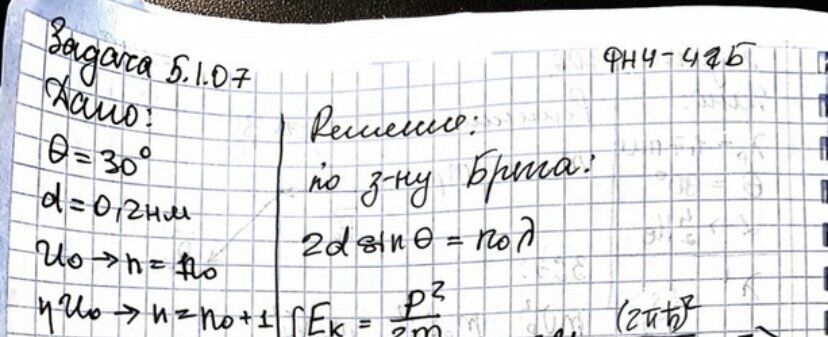 Задача 5.1.07
ФН4-42Б
Дано:
θ = 30°
d = 0,2нм
U₀ → n = n₀
ηU₀ → n = n₀+1
Решение:
по з-ну Брега:
2d sin θ = n₀λ
{E_k = p²/2m
(2πħ)²